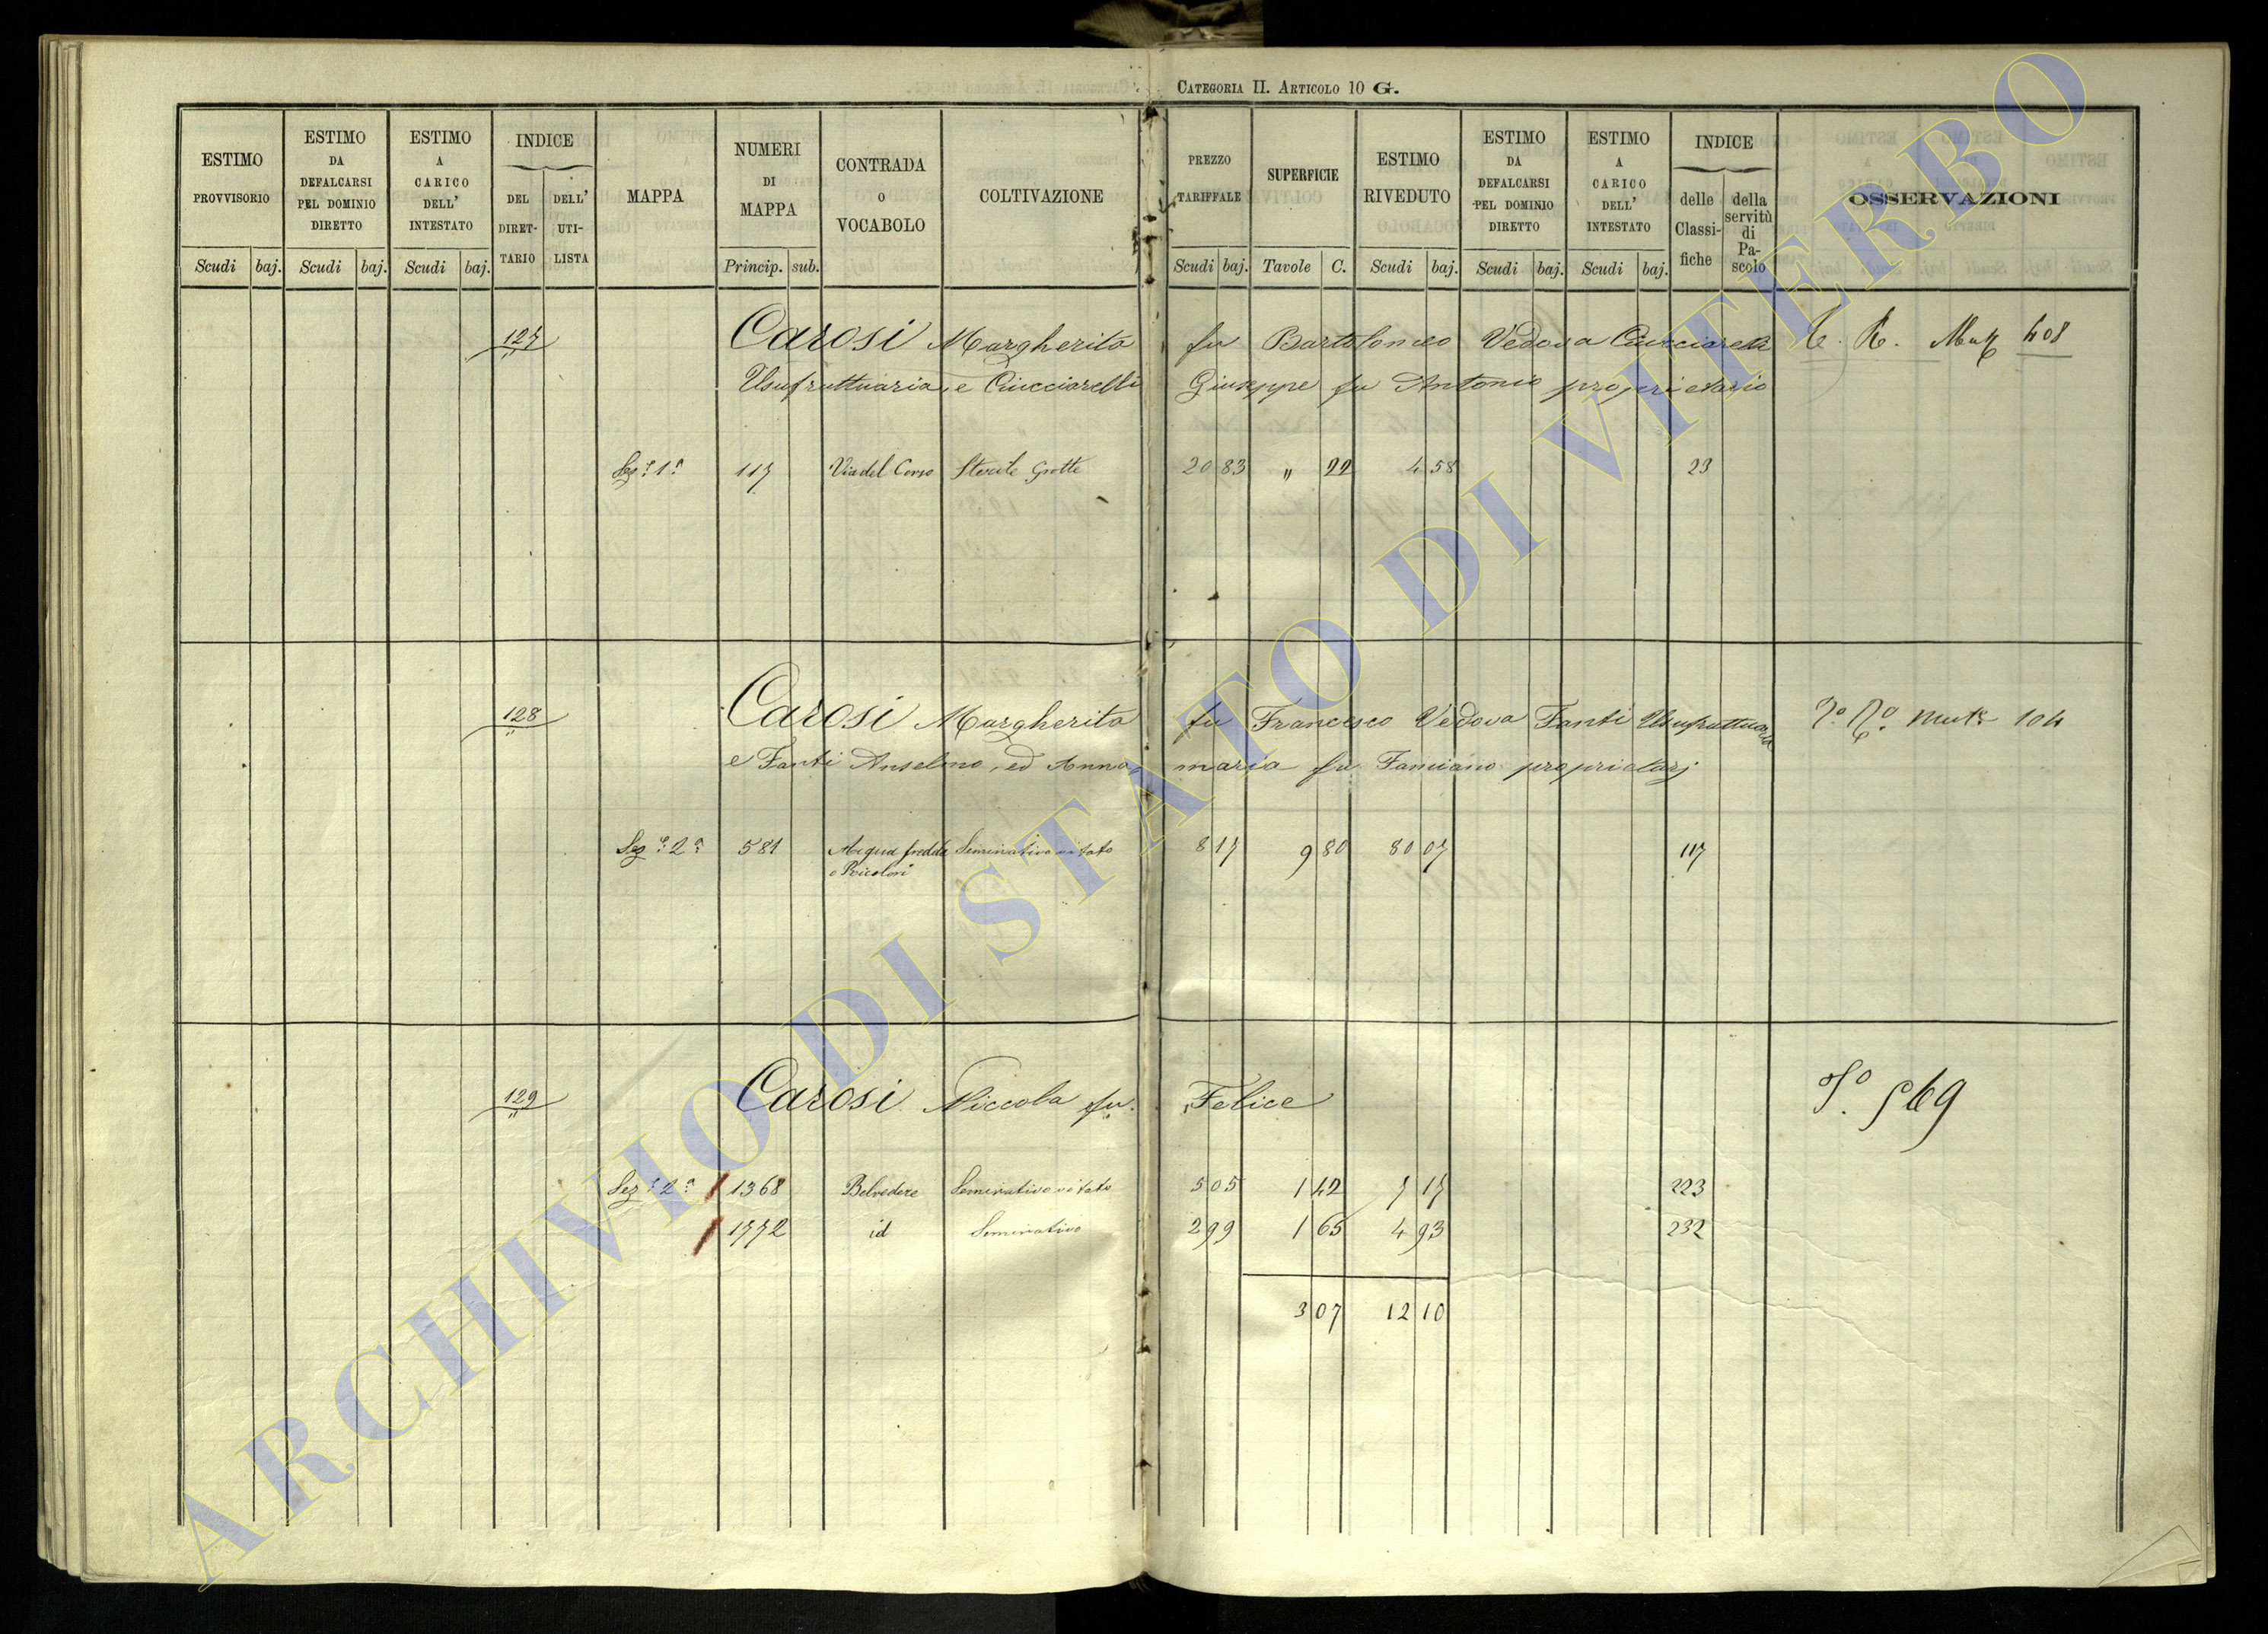 CATEGORIA II. ARTICOLO 10 G.
ESTIMO PROVVISORIO
ESTIMO DA DEFALCARSI PEL DOMINIO DIRETTO
ESTIMO A CARICO DELL' INTESTATO
INDICE
DEL DIRET- TARIO
DELL' UTI- LISTA
MAPPA
NUMERI DI MAPPA
CONTRADA O VOCABOLO
COLTIVAZIONE
PREZZO TARIFFALE
SUPERFICIE
ESTIMO RIVEDUTO
ESTIMO DA DEFALCARSI PEL DOMINIO DIRETTO
ESTIMO A CARICO DELL' INTESTATO
INDICE
delle Classi- fiche
della servitù di Pa- scolo
OSSERVAZIONI
Scudi baj. Scudi baj. Scudi baj. Princip. sub. Scudi baj. Tavole C. Scudi baj. Scudi baj. Scudi baj.
127 Carosi Margherita fu Bartolomeo Vedova Ciucciarelli 408
Usufruttuaria, e Ciucciarelli Giuseppe fu Antonio proprietario
Sez.e 1a 117 Via del Corso Sterile Grotte 20 83 " 22 4 58 23
128 Carosi Margherita fu Francesco Vedova Fanti Usufruttuaria 104
e Fanti Anselmo, ed Anna maria fu Famiano proprietarj
Sez.e 2a 581 Acqua fredda Seminativo vitato 8 17 9 80 80 07 117
129 Carosi Niccola fu Felice
Sez.e 2a 1368 Belvedere Seminativo vitato 5 05 1 42 7 17 223
1772 id Seminativo 2 99 1 65 4 93 232
3 07 12 10
ARCHIVIO DI STATO DI VITERBO